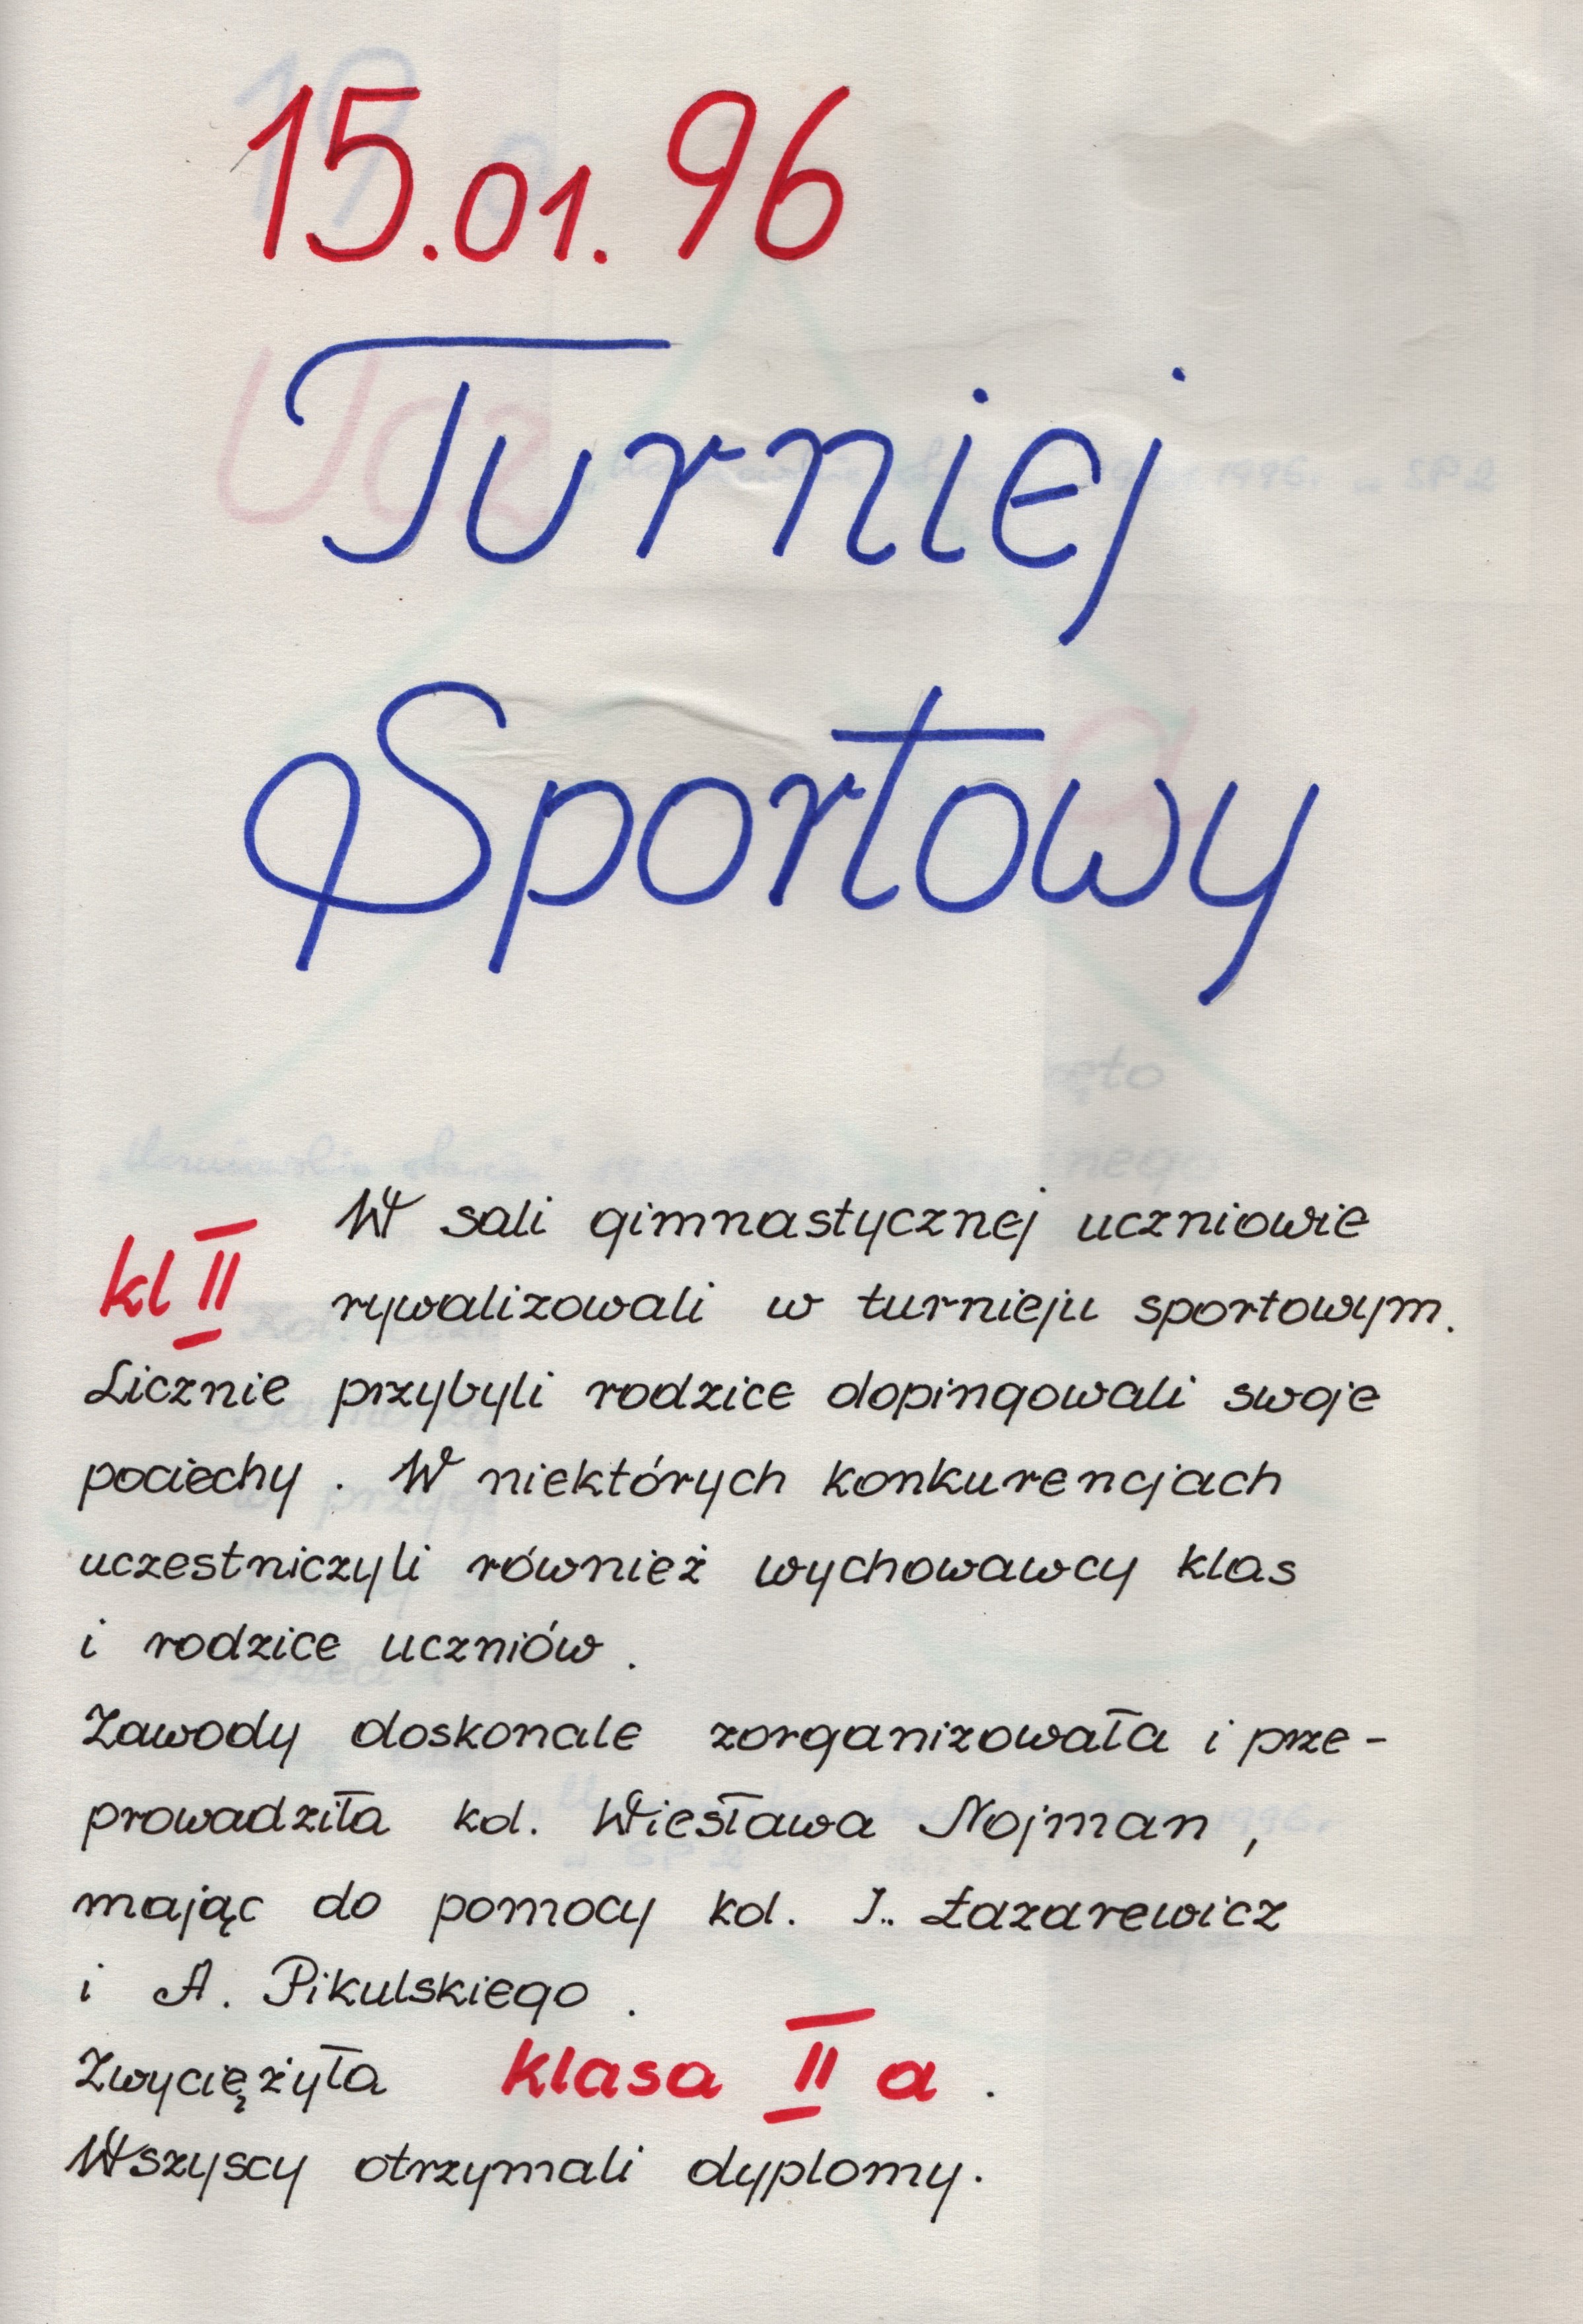 15.01.96
Turniej
Sportowy
kl II W sali gimnastycznej uczniowie
rywalizowali w turnieju sportowym.
Licznie przybyli rodzice dopingowali swoje
pociechy. W niektórych konkurencjach
uczestniczyli również wychowawcy klas
i rodzice uczniów.
Zawody doskonale zorganizowała i prze-
prowadziła kol. Wiesława Nojman,
mając do pomocy kol. J.. Łazarewicz
i A. Pikulskiego.
Zwyciężyła klasa II a.
Wszyscy otrzymali dyplomy.